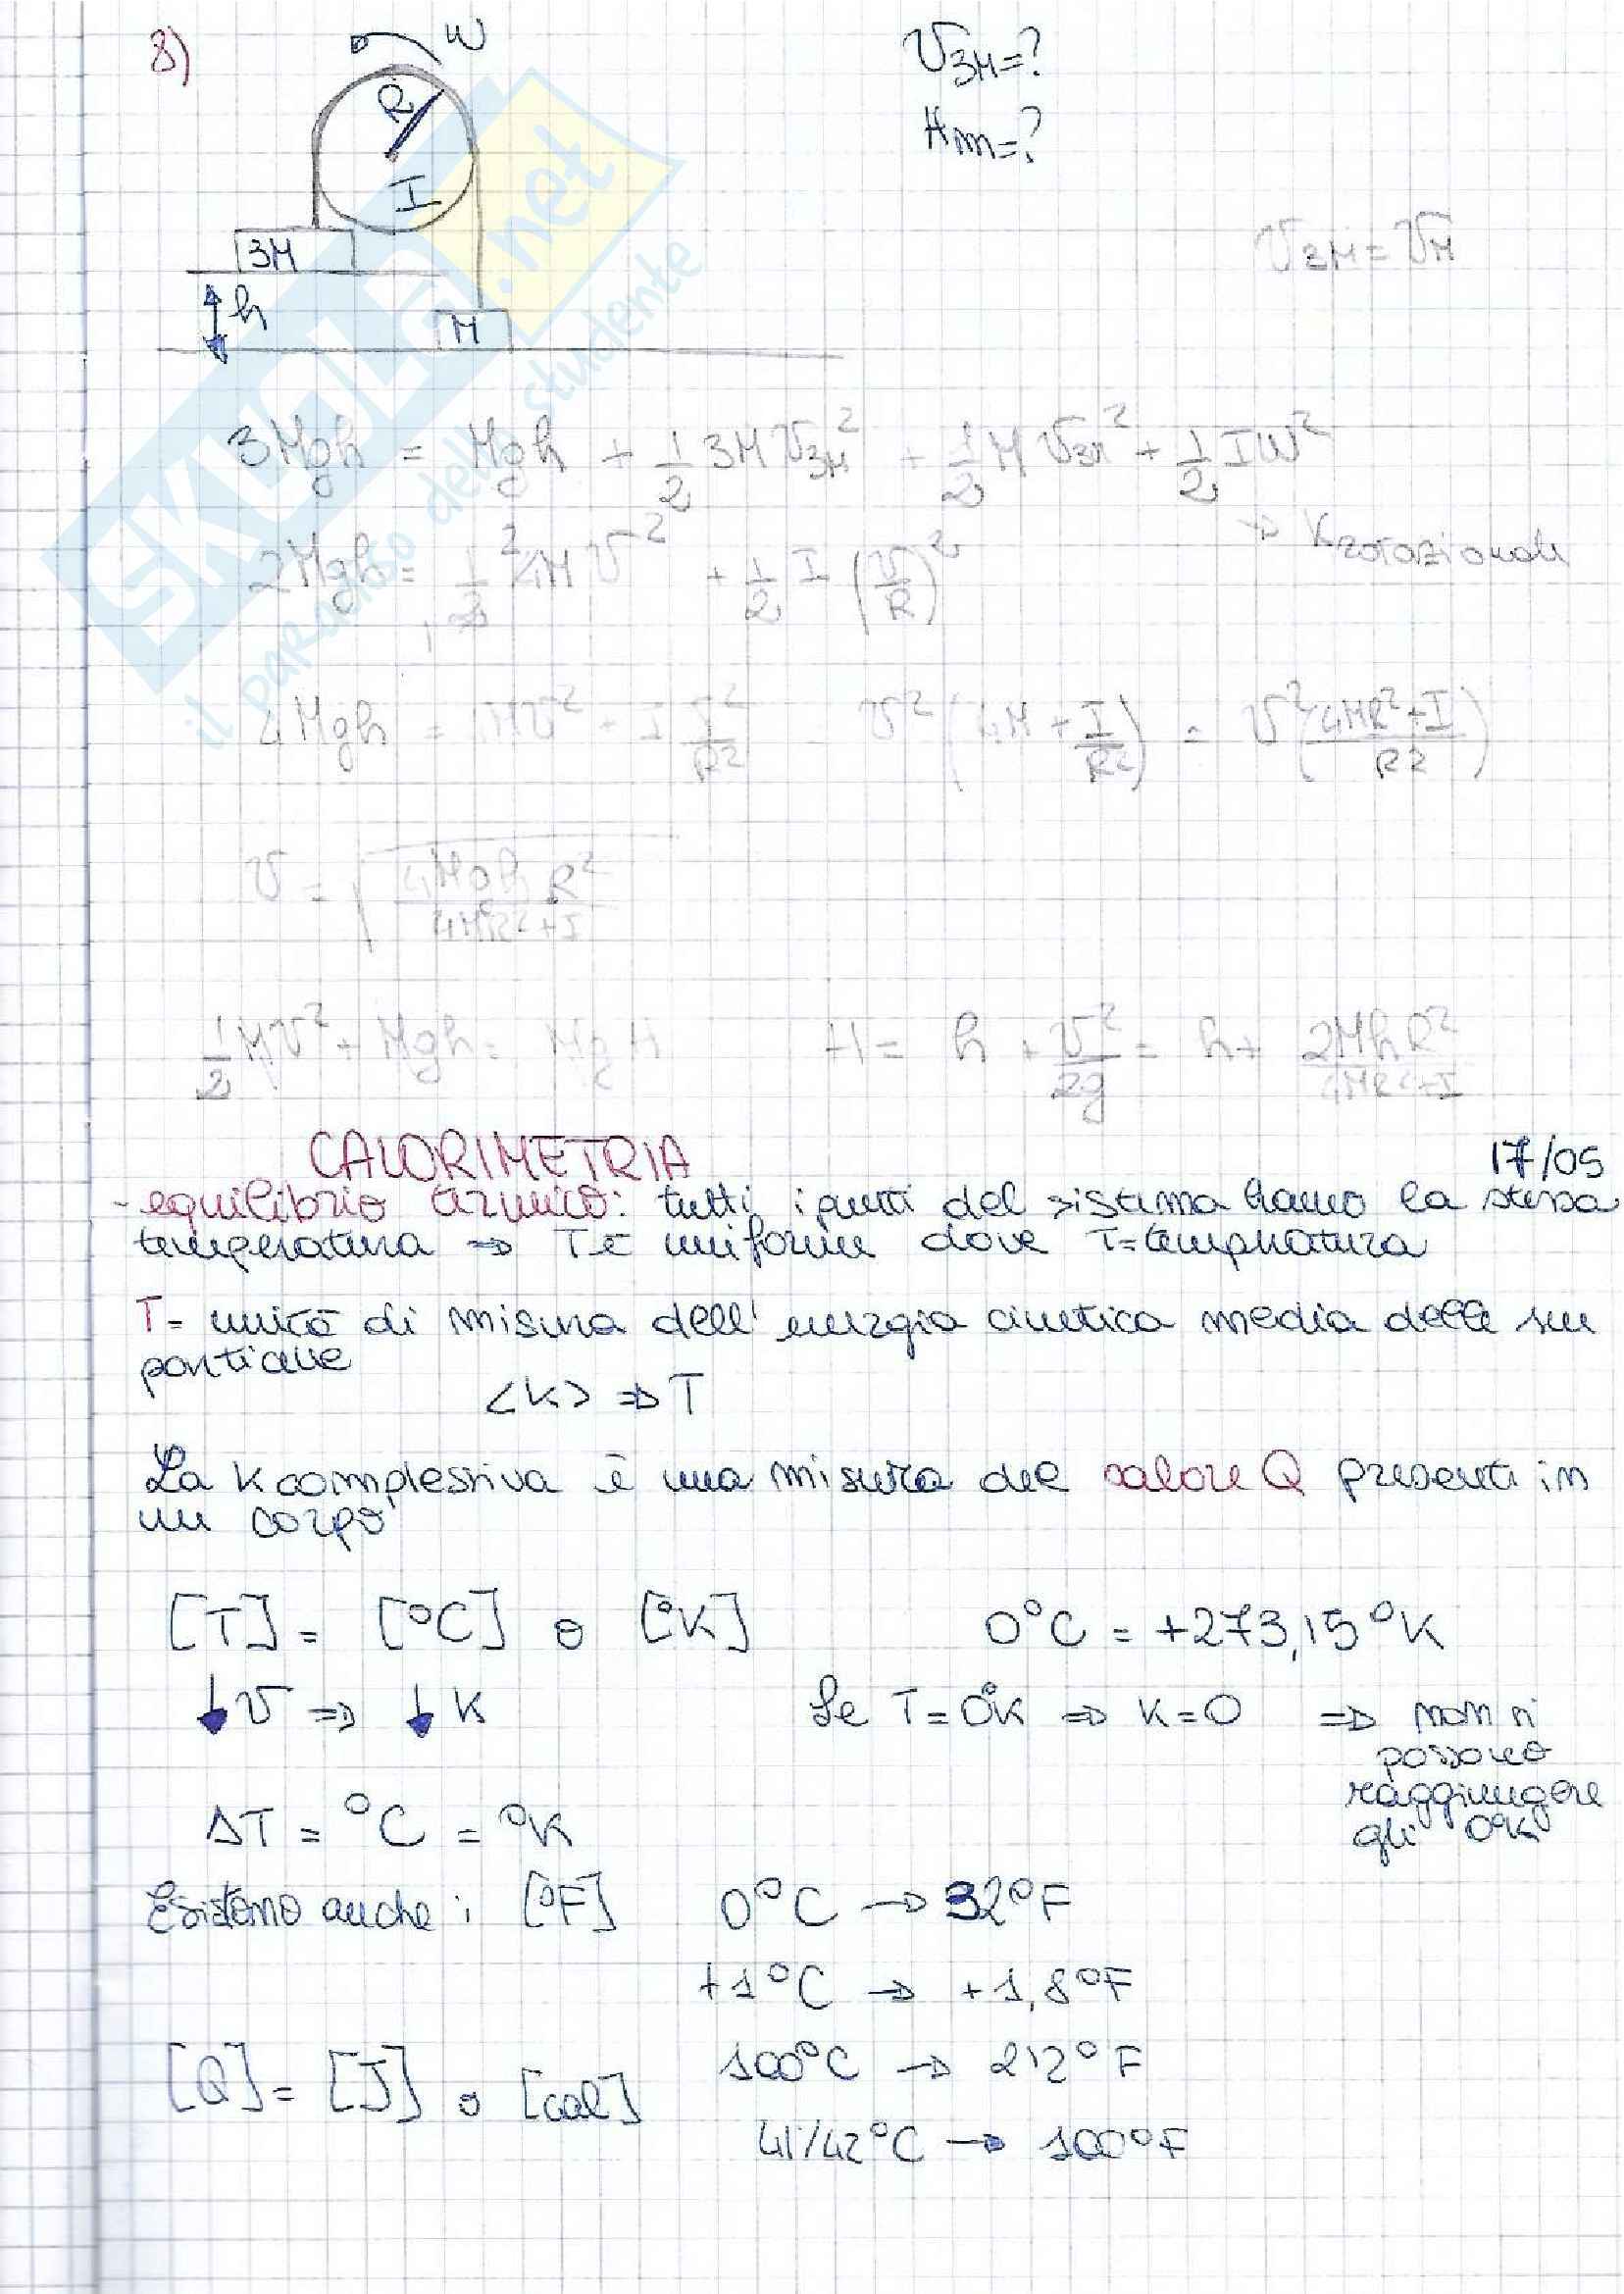 8)
ω
R
I
3M
h
M
V3M=?
Hm=?
V3M = VM
3Mgh = Mgh + 1/2 3M V3M² + 1/2 M V3M² + 1/2 Iω²
→ K rotazionale
2Mgh = 1/2 4M V² + 1/2 I (V/R)²
4Mgh = 4MV² + I V²/R² = V² (4M + I/R²) = V² (4MR²+I / R²)
V = √(4Mgh R² / 4MR²+I)
1/2 MV² + Mgh = MgH   H = h + V²/2g = h + 2MhR² / 4MR²+I
CALORIMETRIA   17/05
- equilibrio termico: tutti i punti del sistema hanno la stessa
temperatura ⇒ T è uniforme dove T=temperatura
T= unità di misura dell'energia cinetica media delle sue
particelle
<K> ⇒ T
La K complessiva è una misura del calore Q presente in
un corpo
[T] = [°C] o [°K]   0°C = +273,15°K
↓V ⇒ ↓K   Se T=0°K ⇒ K=0 ⇒ non si
possono
raggiungere
gli 0°K
ΔT = °C = °K
Esistono anche i [°F]   0°C → 32°F
+1°C → +1,8°F
[Q] = [J] o [cal]   100°C → 212°F
41/42°C → 100°F
SKUOLA.net
il paradiso dello studente